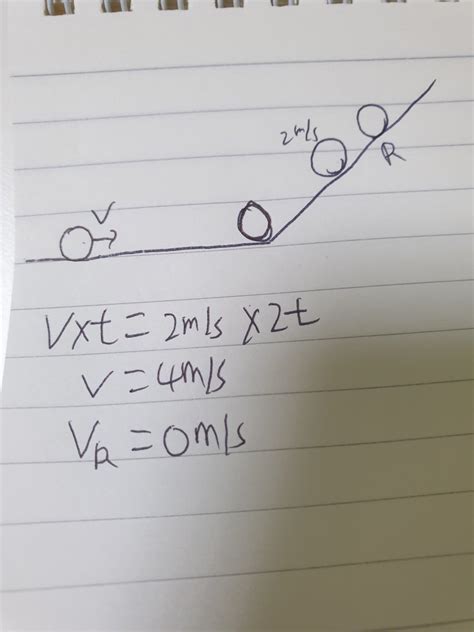 2m/s
R
V
V×t=2m/s×2t
V=4m/s
V_R=0m/s